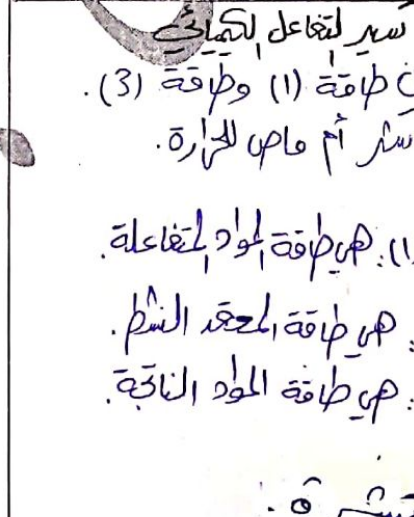 سير التفاعل الكيميائي
طاقة (1) وطاقة (3).
أم ماص للحرارة.
1): هي طاقة المواد المتفاعلة.
: هي طاقة المعقد النشط.
: هي طاقة المواد الناتجة.